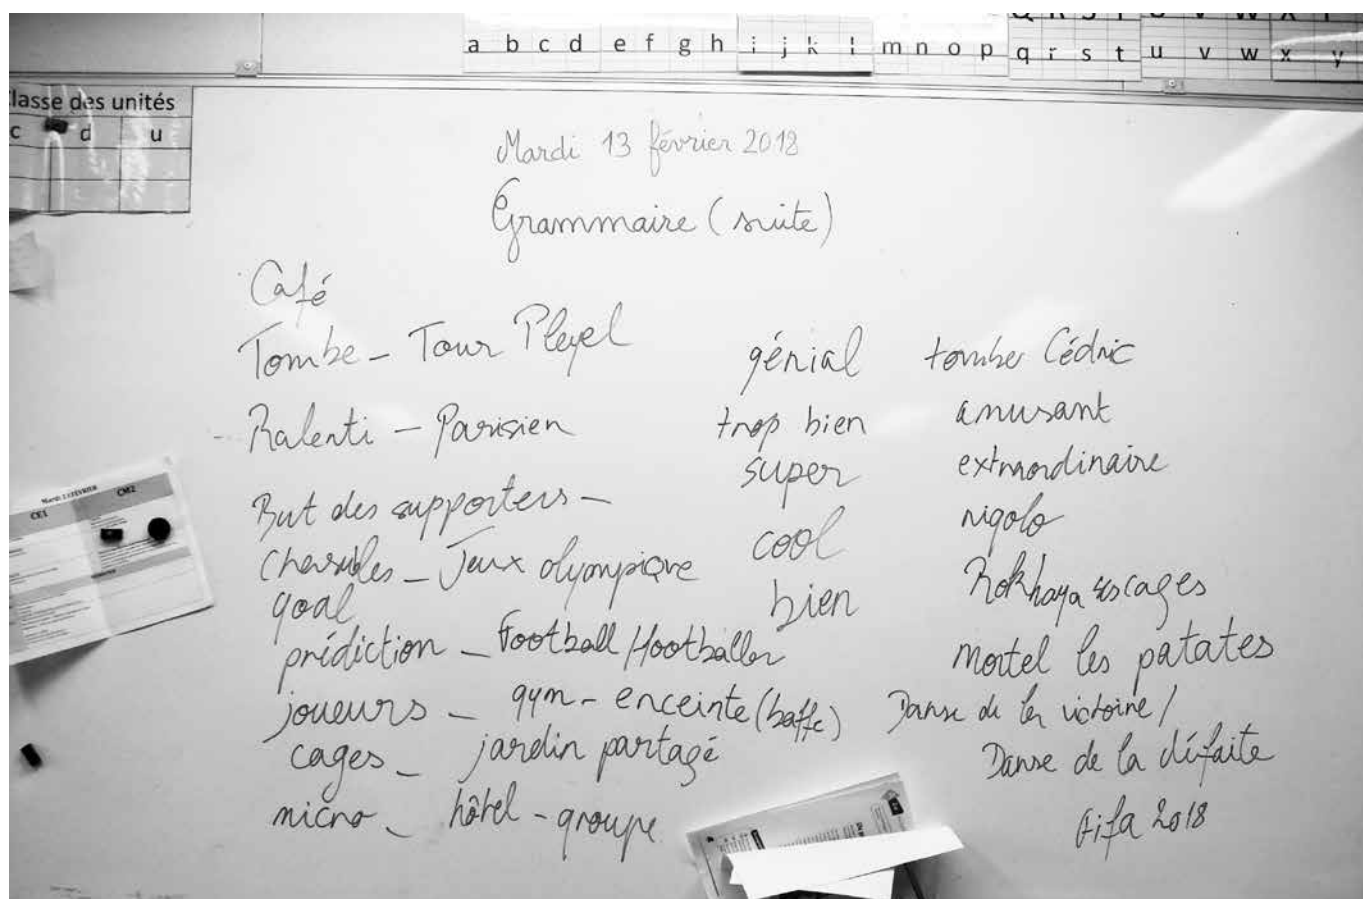 a b c d e f g h i j k l m n o p q r s t u v w x y
lasse des unités
c d u
Mardi 13 février 2018
Grammaire (suite)
Café
Tombe - Tour Pleyel
Ralenti - Parisien
But des supporters -
Chasubles - Jeux olympique
goal
prédiction - Football / footballer
joueurs - gym - enceinte (baffe)
cages - jardin partagé
micro - hôtel - groupe
génial
trop bien
super
cool
bien
tomber Cédric
amusant
extraordinaire
rigolo
Rokhaya cages
mortel les patates
Danse de la victoire /
Danse de la défaite
Fifa 2018
CE1
CM2